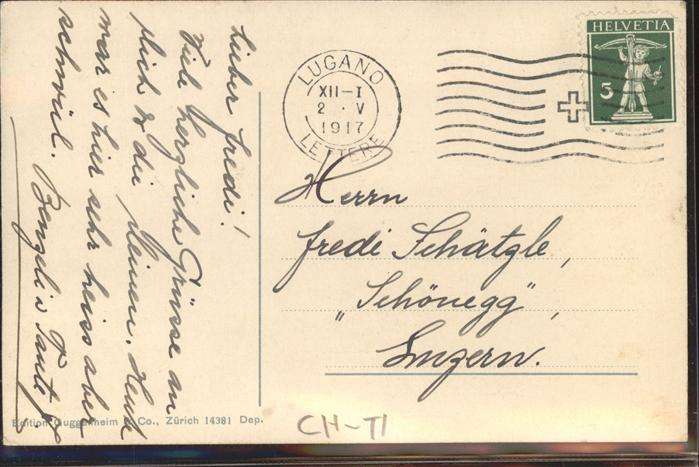 Lieber Fredi!
Viele herzliche Grüsse an
dich & die kleinen. Heute
war es hier sehr heiss aber
schwül.
HELVETIA
5
LUGANO
XII-I
2 · V
1917
LETTERE
Herrn
Fredi Schätzle,
„Schönegg",
Luzern.
Edition Guggenheim & Co., Zürich 14381 Dep.
CH-TI